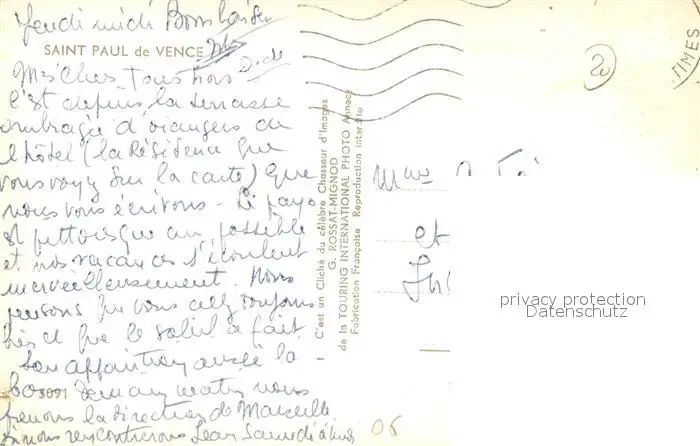 Jeudi midi Bons baisers
SAINT PAUL de VENCE
Mes Chers Tous trois
C'est depuis la terrasse
ombragée d'orangers de
l'hôtel (la Résidence que
vous voyez sur la carte) que
nous vous écrivons - Le pays
est pittoresque au possible
et nos vacances s'écoulent
merveilleusement. Nous
pensons que vous allez toujours
bien et que le soleil a fait
son apparition aussi là
bas Demain matin nous
3091
prenons la direction de Marseille
si nous rencontrerons Jean Samedi à midi
C'est un Cliché du célèbre Chasseur d'Images
G. ROSSAT-MIGNOD
de la TOURING INTERNATIONAL PHOTO Annecy
Fabrication Française Reproduction interdite
20
TIMES
Mme
et
privacy protection
Datenschutz
06